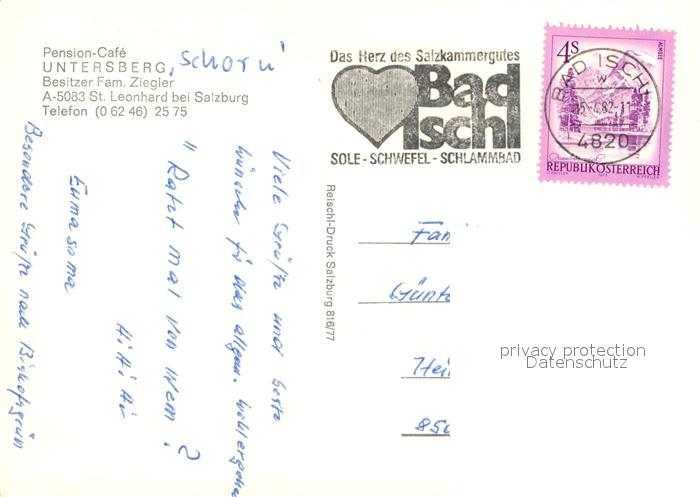 Pension-Café
UNTERSBERG, "Schorn"
Besitzer Fam. Ziegler
A-5083 St. Leonhard bei Salzburg
Telefon (0 62 46) 25 75
Viele Grüße und beste
Wünsche für das allgem. Wohlergehn
" Ratet mal von wem ?
Hi Hi Hi
Eumasoma
Besondere Grüße nach Bischofsgrün
Reischl-Druck Salzburg 816/77
Das Herz des Salzkammergutes
Bad
Ischl
SOLE - SCHWEFEL - SCHLAMMBAD
4S
ALMSEE
BAD ISCHL
4820
REPUBLIK ÖSTERREICH
Fam
Günt
Hei
85
privacy protection
Datenschutz